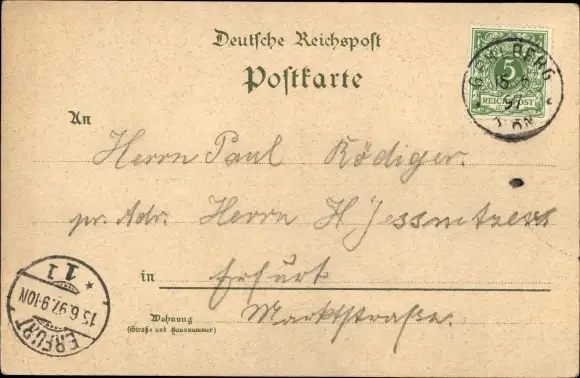 Deutsche Reichspost
Postkarte
5
REICHSPOST
GEHLBERG
97
An
Herrn Paul Rödiger.
pr. Adr. Herrn H Jessnitzer
in Erfurt
Marktstraße.
Wohnung
(Straße und Hausnummer)
ERFURT
15.6.97.9-10N
* 11